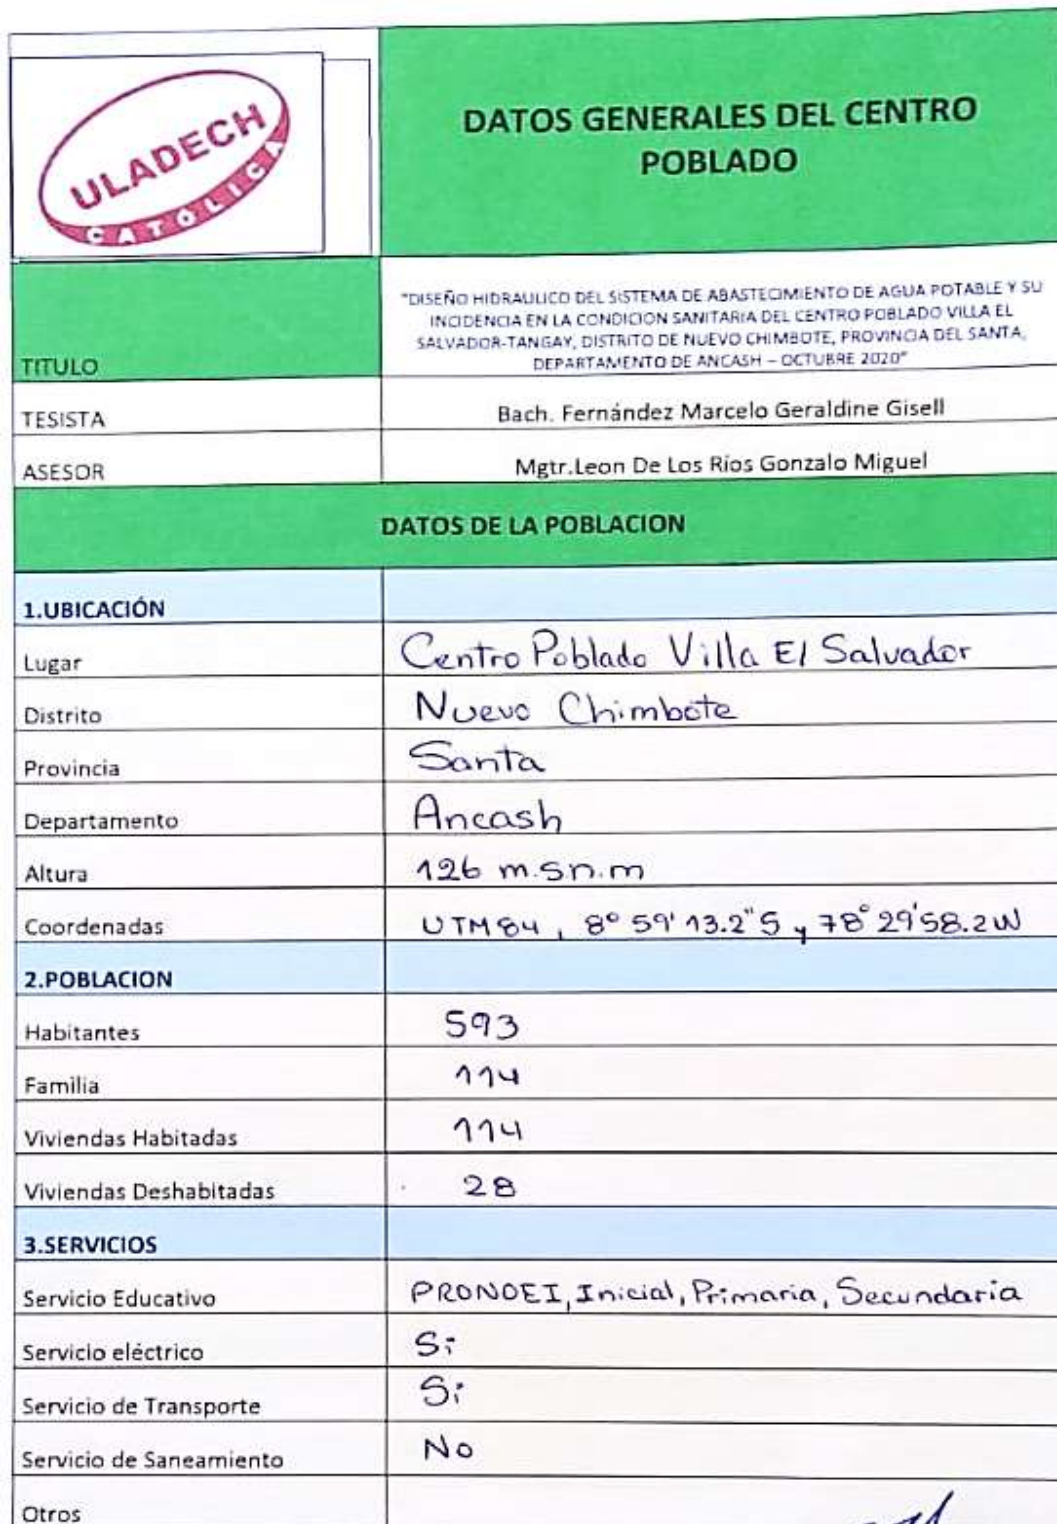 ULADECH
CATÓLICA
DATOS GENERALES DEL CENTRO
POBLADO
TITULO
"DISEÑO HIDRAULICO DEL SISTEMA DE ABASTECIMIENTO DE AGUA POTABLE Y SU
INCIDENCIA EN LA CONDICION SANITARIA DEL CENTRO POBLADO VILLA EL
SALVADOR-TANGAY, DISTRITO DE NUEVO CHIMBOTE, PROVINCIA DEL SANTA,
DEPARTAMENTO DE ANCASH – OCTUBRE 2020"
TESISTA Bach. Fernández Marcelo Geraldine Gisell
ASESOR Mgtr.Leon De Los Ríos Gonzalo Miguel
DATOS DE LA POBLACION
1.UBICACIÓN
Lugar Centro Poblado Villa El Salvador
Distrito Nuevo Chimbote
Provincia Santa
Departamento Ancash
Altura 126 m.sn.m
Coordenadas UTM84, 8° 59' 13.2" S y 78° 29' 58.2 W
2.POBLACION
Habitantes 593
Familia 114
Viviendas Habitadas 114
Viviendas Deshabitadas 28
3.SERVICIOS
Servicio Educativo PRONOEI, Inicial, Primaria, Secundaria
Servicio eléctrico Si
Servicio de Transporte Si
Servicio de Saneamiento No
Otros